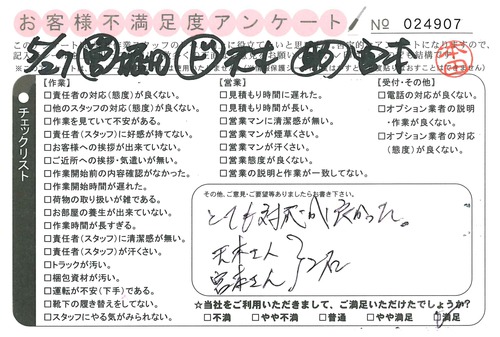 お客様不満足度アンケート
No 024907
5/27
【作業】
□責任者の対応(態度)が良くない。
□他のスタッフの対応(態度)が良くない。
□作業を見ていて不安がある。
□責任者(スタッフ)に好感が持てない。
□お客様への挨拶が出来ていない。
□ご近所への挨拶・気遣いが無い。
□作業開始前の内容確認がなかった。
□作業開始時間が遅れた。
□荷物の取り扱いが雑である。
□お部屋の養生が出来ていない。
□作業時間が長すぎる。
□責任者(スタッフ)に清潔感が無い。
□責任者(スタッフ)が汗くさい。
□トラックが汚い。
□梱包資材が汚い。
□運転が不安(下手)である。
□靴下の履き替えをしてない。
□スタッフにやる気がみられない。
●チェックリスト
【営業】
□見積もり時間に遅れた。
□見積もり時間が長い。
□営業マンに清潔感が無い。
□営業マンが煙草くさい。
□営業マンが汗くさい。
□営業態度が良くない。
□営業の説明と作業が一致してない。
【受付・その他】
□電話の対応が良くない。
□オプション業者の説明
・作業が良くない。
□オプション業者の対応
(態度)が良くない。
その他、ご意見・ご要望等ありましたらお書き下さい。
とても対応が良かった。
天本さん
宮本さん
2名
☆当社をご利用いただきまして、ご満足いただけたでしょうか?
□不満 □やや不満 □普通 □やや満足 □満足